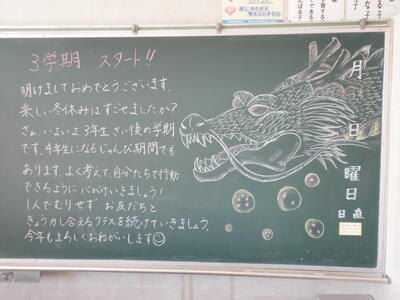 3学期 スタート!!
明けましておめでとうございます。
楽しい冬休みはすごせましたか?
さぁ、いよいよ3年生さい後の学期
です。4年生になるじゅんび期間でも
あります。よく考えて、自分たちで行動
できるように心がけいきましょう!
1人でむりせず お友だちと
きょう力し合えるクラスを続けていきましょう。
今年もよろしくおねがいします☺
月
日
曜日
日直